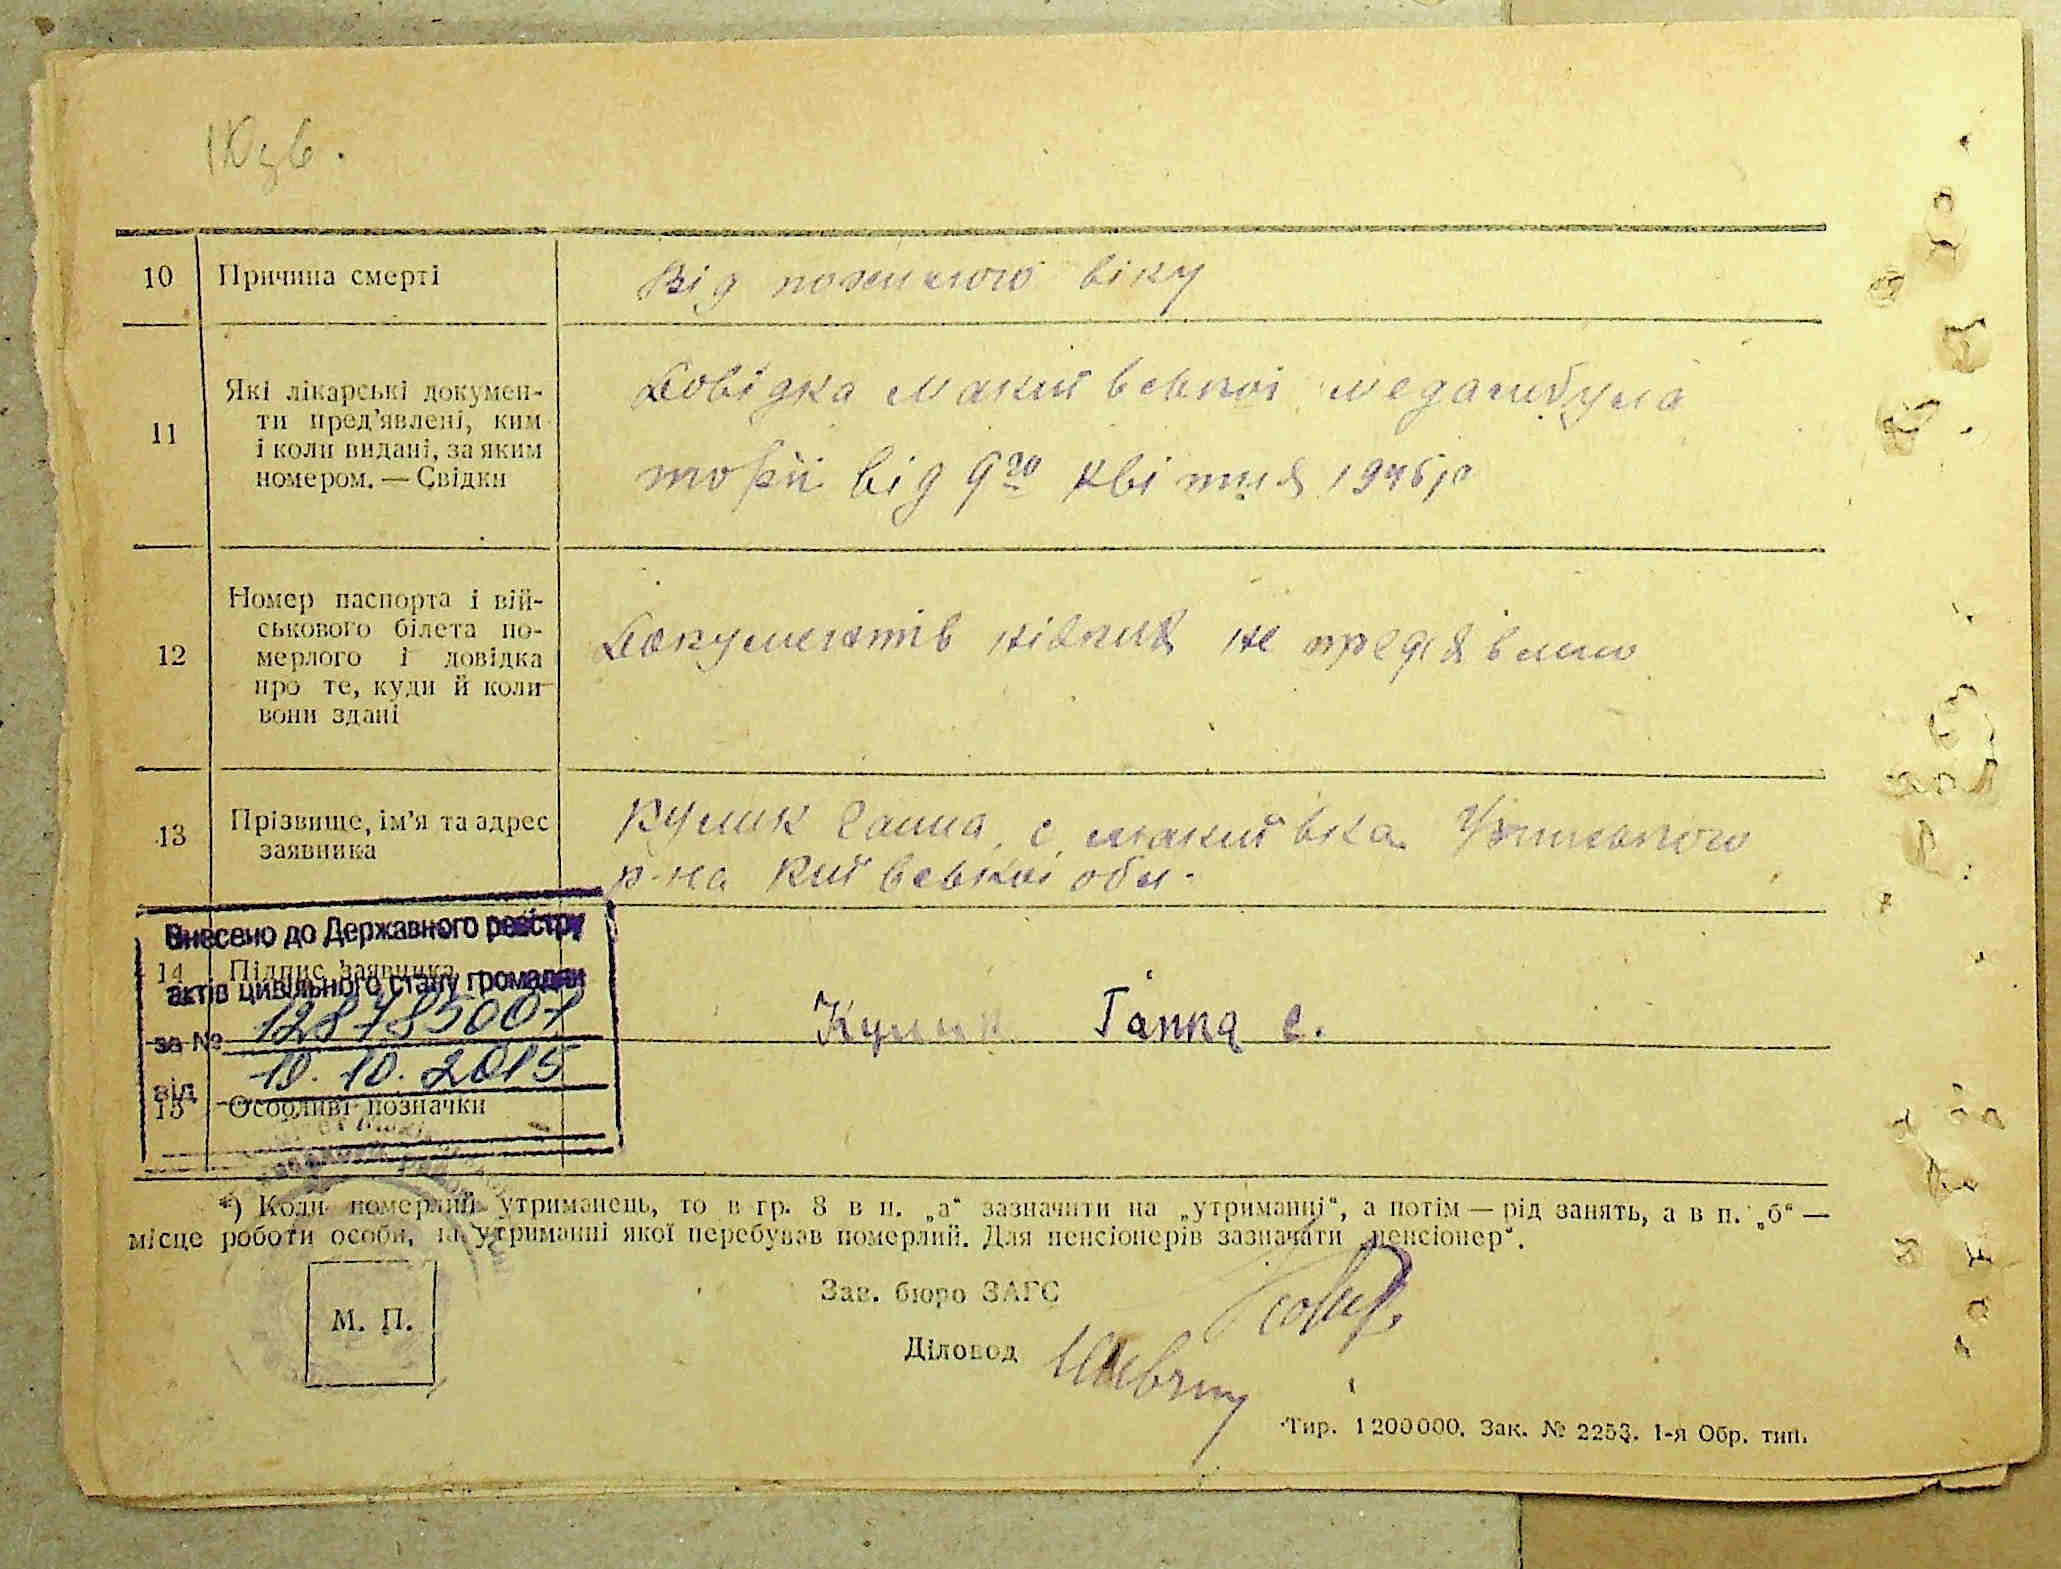 10 Причина смерті Від пожилого віку
11 Які лікарські докумен-
ти пред'явлені, ким
і коли видані, за яким
номером. — Свідки
Довідка Макиївської медамбула
торії від 9го квітня 1946 р
12 Номер паспорта і вій-
ськового білета по-
мерлого і довідка
про те, куди й коли
вони здані
Документів ніяких не предявлено
13 Прізвище, ім'я та адрес
заявника
Кулик Ганна с. Макиївка
р-на Киівської обл.
Внесено до Державного реєстру
14 Підпис заявника Кулик Ганна
актів цивільного стану громадян
за № 12878500
від 10.10.2015
15 Особливі позначки
*) Коли померлий утриманець, то в гр. 8 в п. „а“ зазначити на „утриманні“, а потім — рід занять, а в п. „б“ —
місце роботи особи, на утриманні якої перебував померлий. Для пенсіонерів зазначати „пенсіонер“.
М. П.
Зав. бюро ЗАГС
Діловод
Тир. 1200000. Зак. № 2253. 1-я Обр. тип.